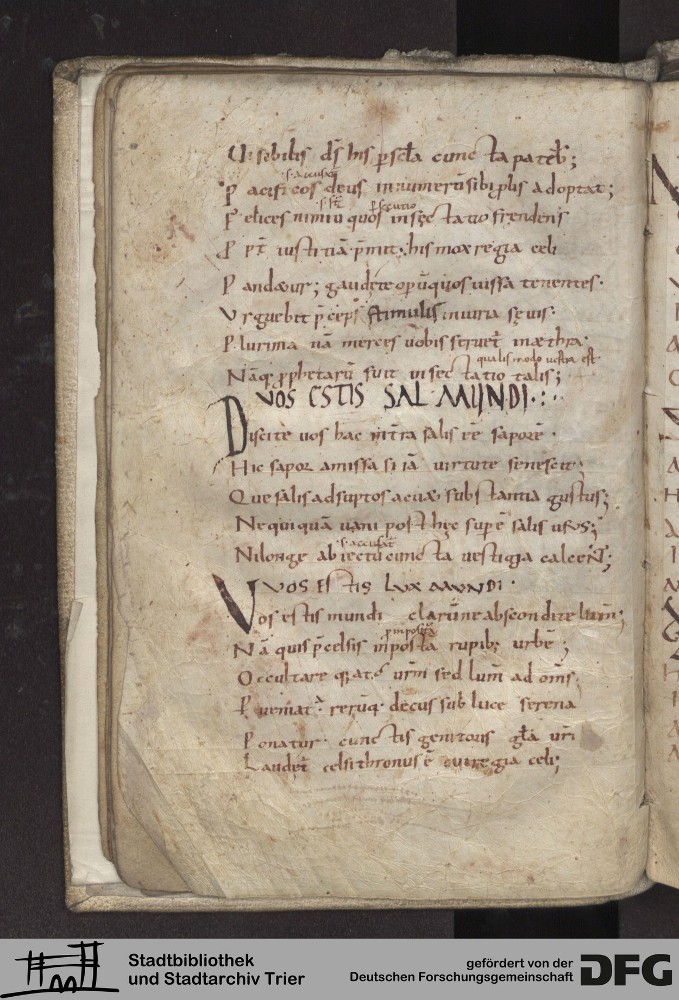 Visibilis ds his p scła cuncta pateb;
s. accusat
P acificos deus in numerū sibi plis adoptat;
P elices nimiū quos insectatio frendens
iustitiā p̄mit. his mox regia celi
P andætur; gaudete
stimulis iniuria sęuis.
P lurima nā merces uobis seruet in æthra.
qualis modo uestra est
Nāq; prophetarū fuit insectatio talis;
VOS ESTIS SAL MUNDI.:.
Discite uos hac in tra salis eē saporē.
Hic sapor amissa si iā uirtute senescit;
Que salis adsuptos acuæ substantia gustus;
Nequiquā uani post hęc supē salis usus;
s. accusat
Ni longe abiectū cuncta uestigia calcent;
VOS ESTIS LUX MUNDI.
Vos estis mundi clarū ne abscondite lum;
Nā quis p̄celsis inposta rupib; urbē;
Occultare urm sed lum ad oms;
decus sub luce serena
P onatur. cunctis genitoris gła uri
Laudet celsithronus ē cui regia celi;
Stadtbibliothek
und Stadtarchiv Trier
gefördert von der
Deutschen Forschungsgemeinschaft
DFG